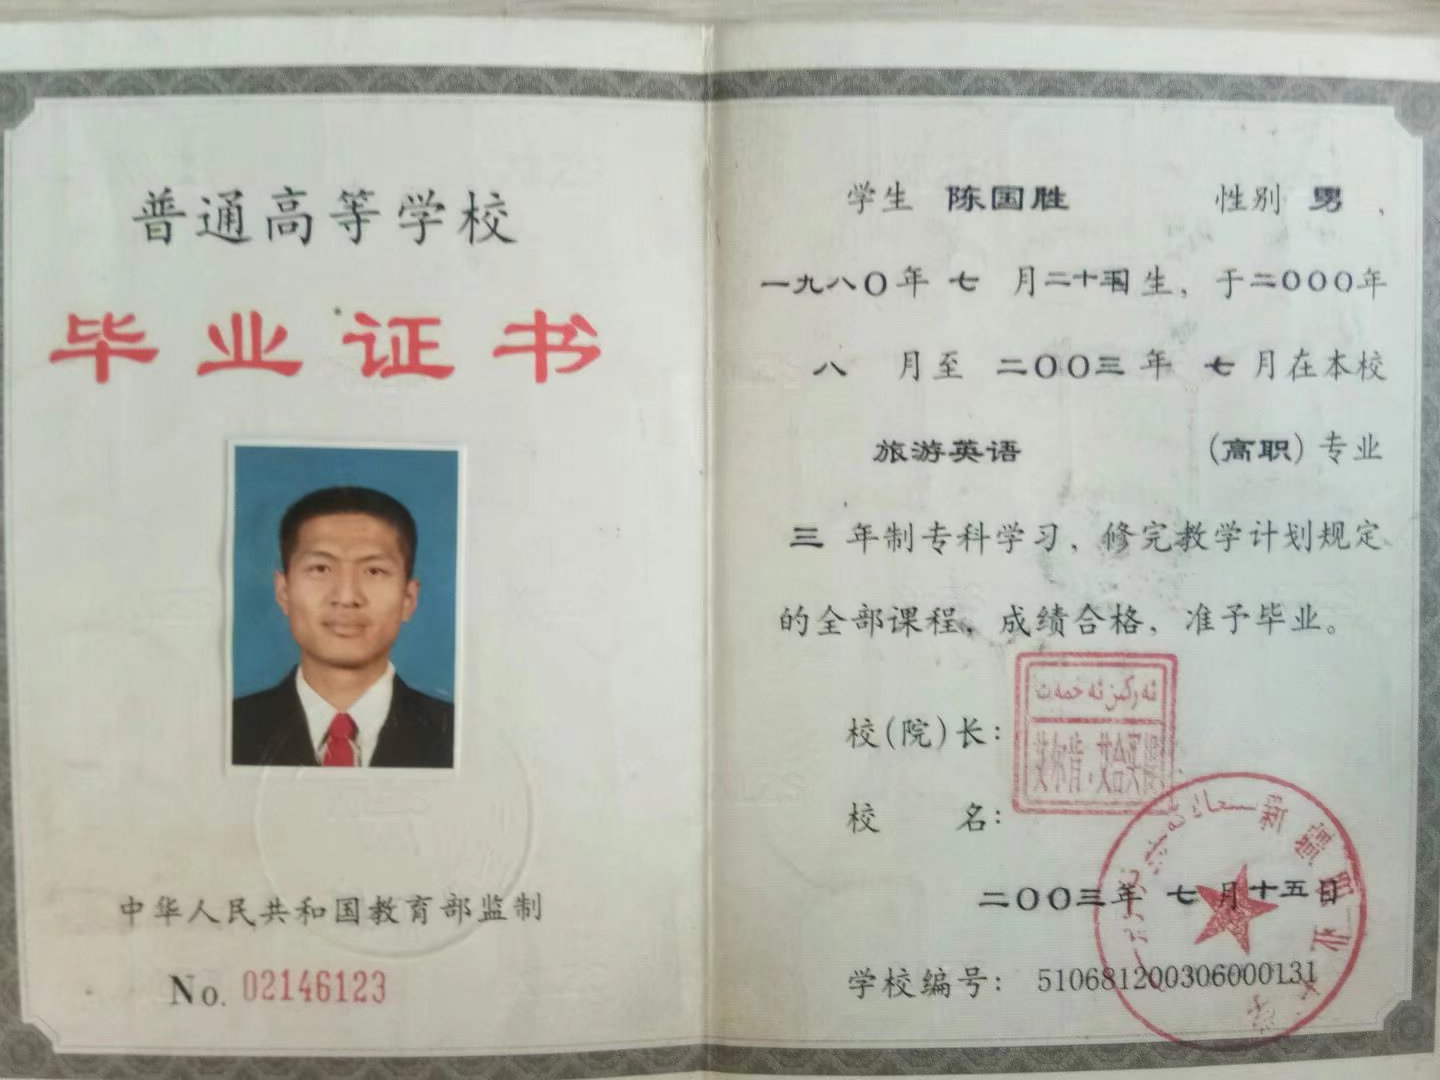 普通高等学校
毕业证书
中华人民共和国教育部监制
No. 02146123
学生 陈国胜 性别 男,
一九八〇年 七 月二十五日生, 于二〇〇〇年
八 月至 二〇〇三 年 七 月在本校
旅游英语 (高职) 专业
三 年制专科学习, 修完教学计划规定
的全部课程, 成绩合格, 准予毕业。
校(院)长:
ئەركىن ئەخمەت
艾尔肯·艾合买提
校 名:
新疆职业
二〇〇三年 七月十五日
学校编号: 510681200306000131